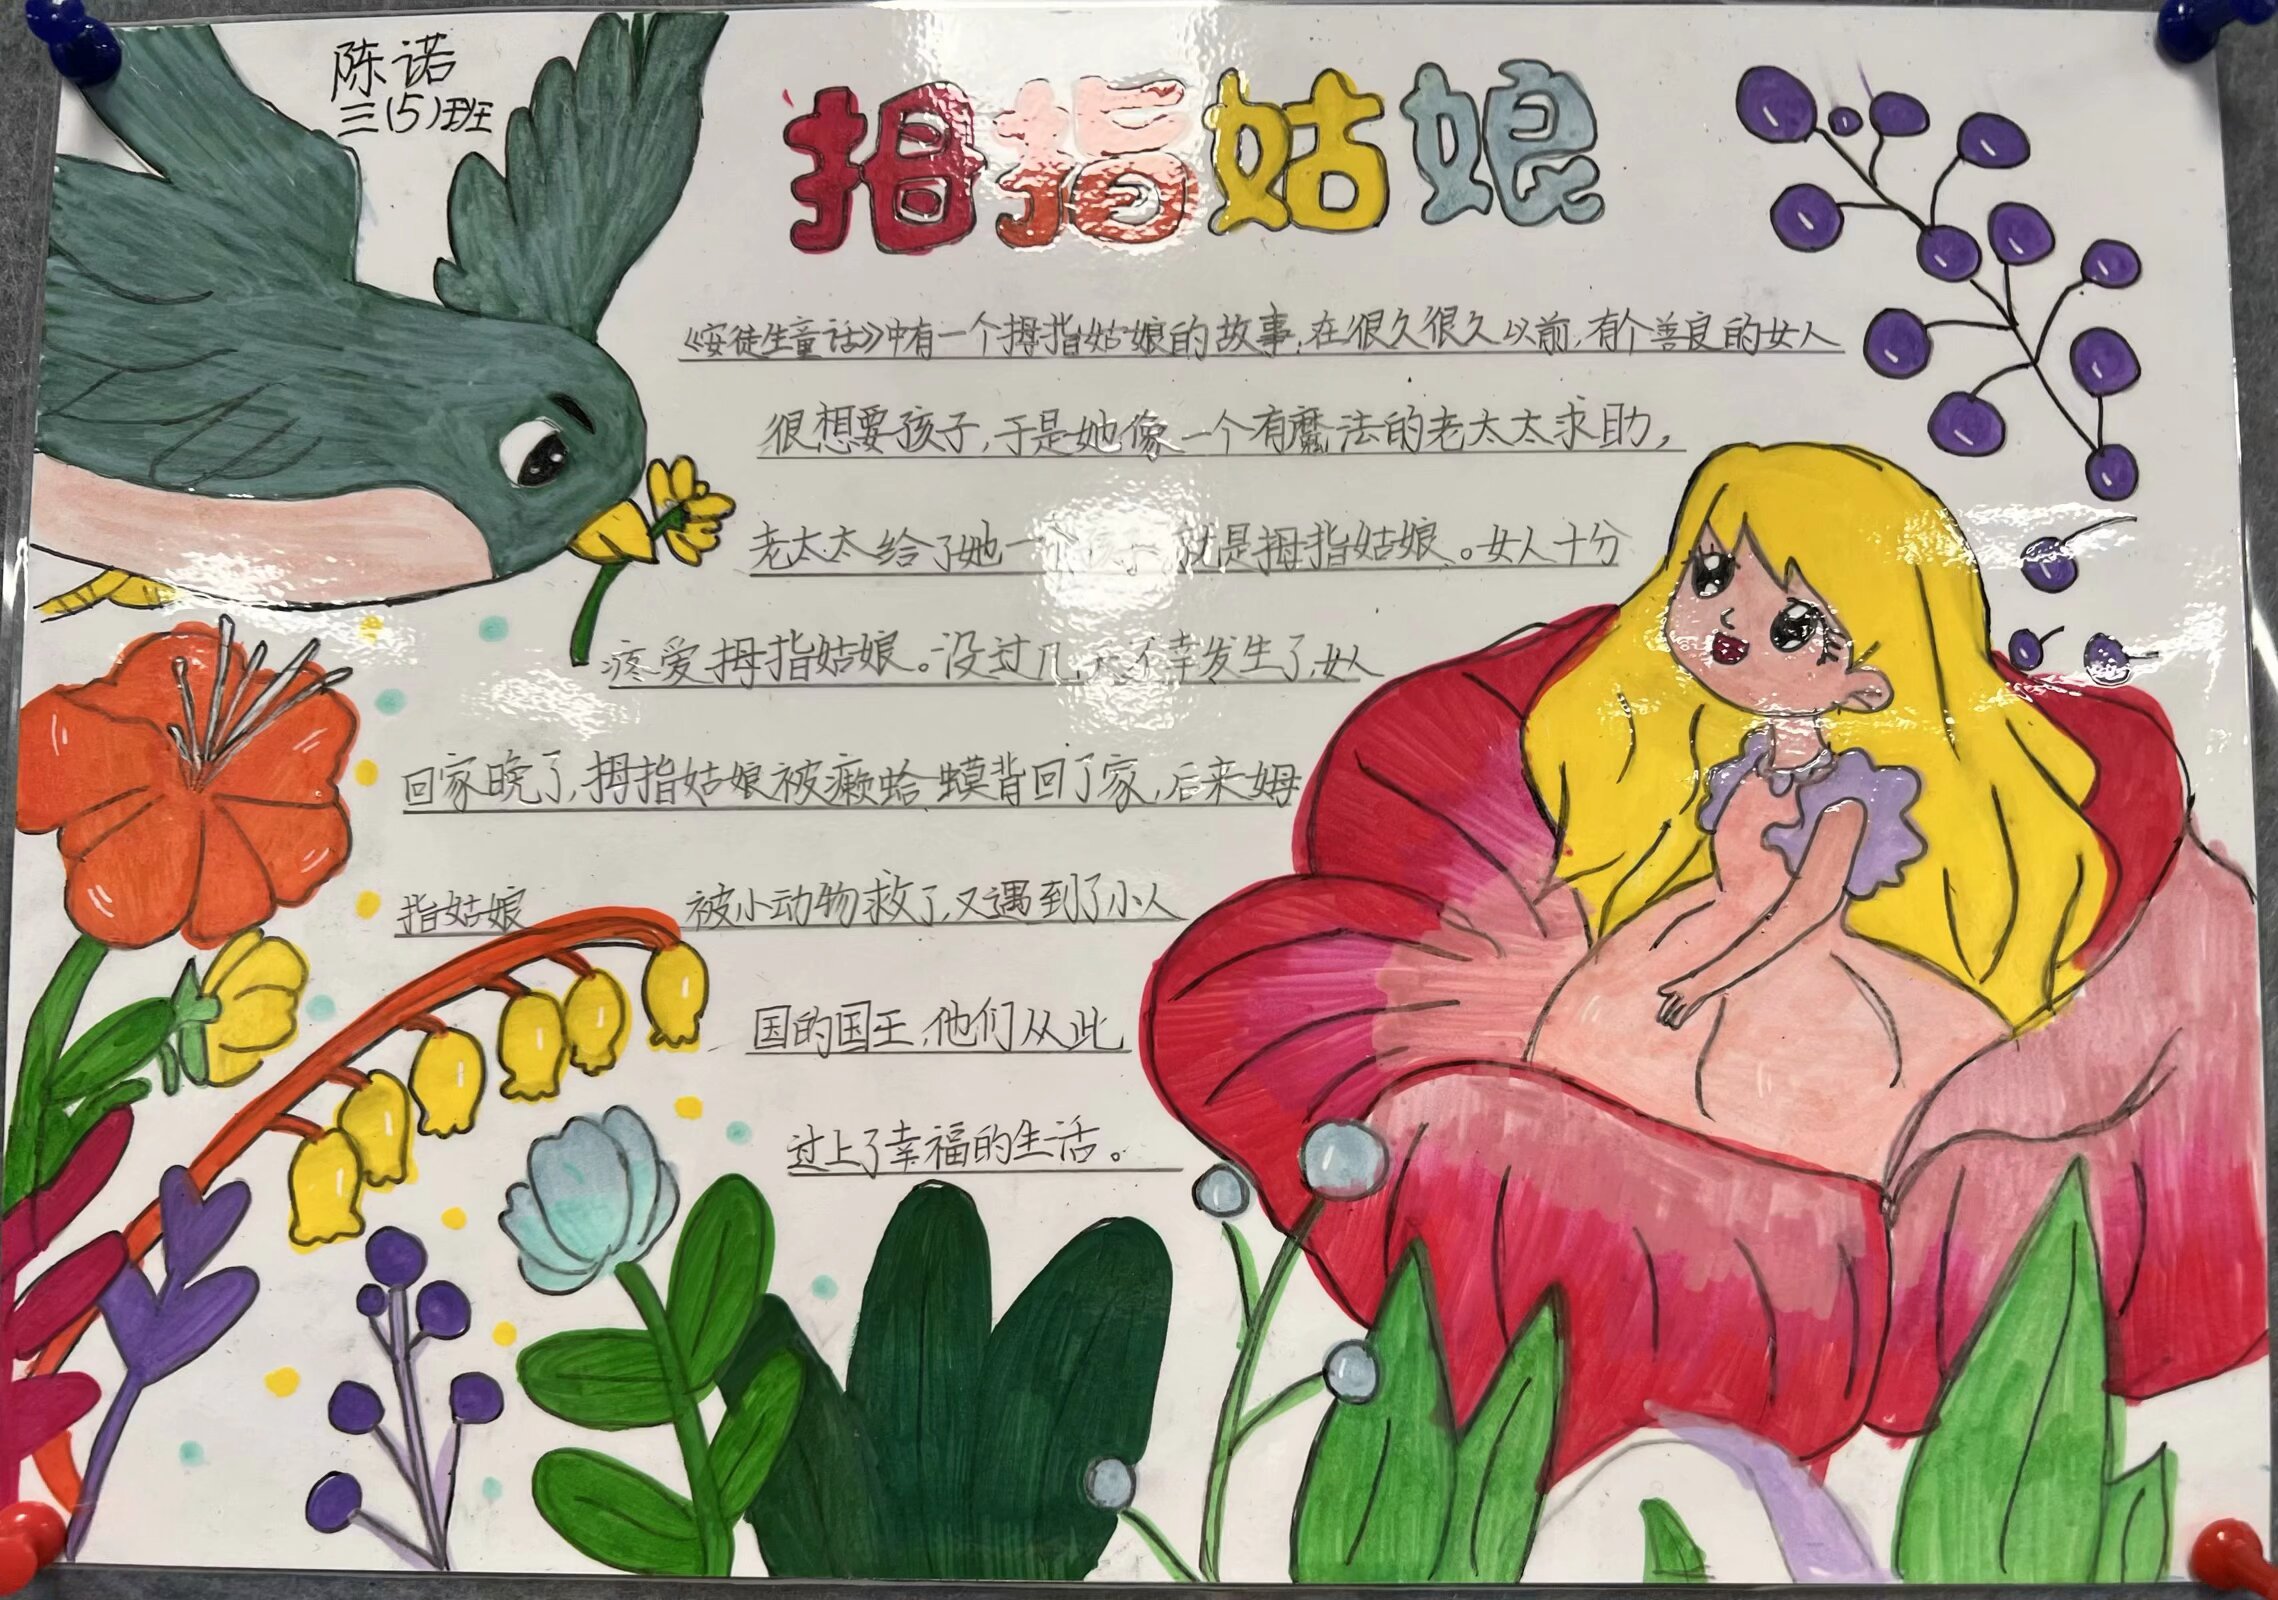 陈诺
三(5)班
拇指姑娘
《安徒生童话》中有一个拇指姑娘的故事,在很久很久以前,有个善良的女人
很想要孩子,于是她像一个有魔法的老太太求助,
老太太给了她一个孩子,就是拇指姑娘。女人十分
疼爱拇指姑娘。没过几天不幸发生了,女人
回家晚了,拇指姑娘被癞蛤蟆背回了家,后来姆
指姑娘 被小动物救了,又遇到了小人
国的国王,他们从此
过上了幸福的生活。